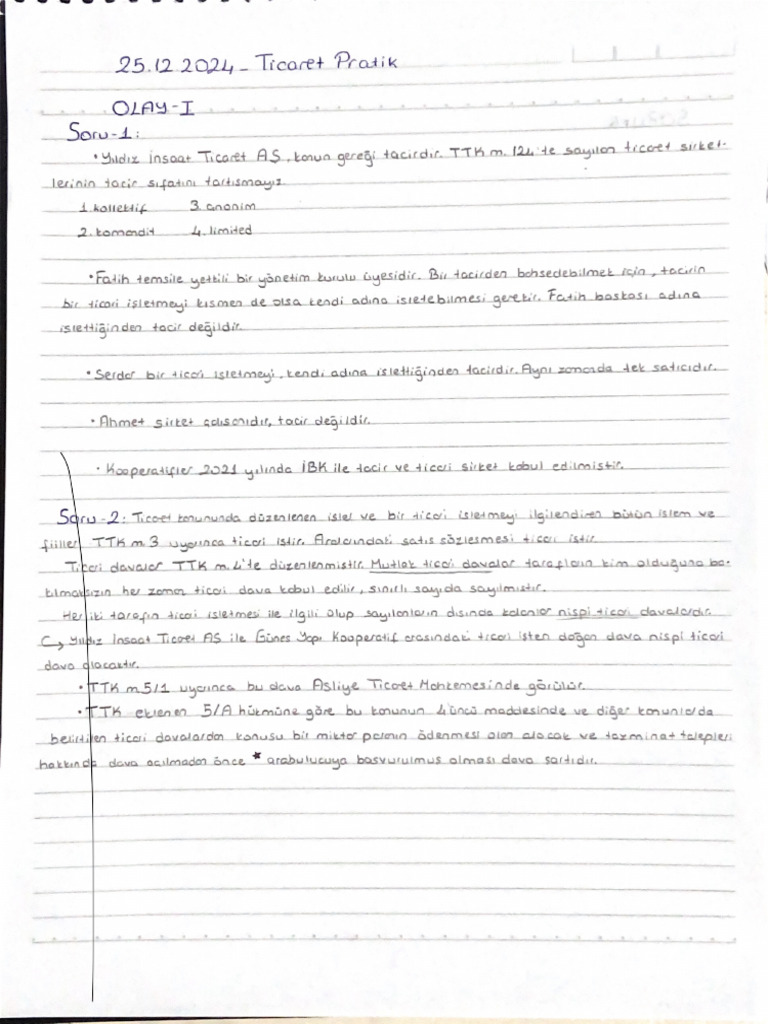 25.12.2024 - Ticaret Pratik
OLAY-I
Soru-1:
• Yıldız İnşaat Ticaret AŞ, konun gereği tacirdir. TTK m. 124'te sayılan ticaret şirket-
lerinin tacir sıfatını tartışmayız.
1. kollektif 3. anonim
2. komandit 4. limited
• Fatih temsile yetkili bir yönetim kurulu üyesidir. Bir tacirden bahsedebilmek için, tacirin
bir ticari işletmeyi kısmen de olsa kendi adına işletebilmesi gerekir. Fatih başkası adına
işlettiğinden tacir değildir.
• Serdar bir ticari işletmeyi, kendi adına işlettiğinden tacirdir. Aynı zamanda tek satıcıdır.
• Ahmet şirket çalışanıdır, tacir değildir.
• Kooperatifler 2021 yılında İBK ile tacir ve ticari şirket kabul edilmiştir.
Soru-2: Ticaret konununda düzenlenen işler ve bir ticari işletmeyi ilgilendiren bütün işlem ve
fiiller TTK m 3 uyarınca ticari iştir. Aralarındaki satış sözleşmesi ticari iştir.
Ticari davalar TTK m 4'te düzenlenmiştir. Mutlak ticari davalar tarafların kim olduğuna ba-
kılmaksızın her zaman ticari dava kabul edilir, sınırlı sayıda sayılmıştır.
Her iki tarafın ticari işletmesi ile ilgili olup sayılanların dışında kalanlar nispi ticari davalardır.
↪ Yıldız İnşaat Ticaret AŞ ile Güneş Yapı Kooperatif arasındaki ticari işten doğan dava nispi ticari
dava olacaktır.
• TTK m 5/1 uyarınca bu dava Asliye Ticaret Mahkemesinde görülür.
• TTK eklenen 5/A hükmüne göre bu konunun 4 üncü maddesinde ve diğer konunlarda
belirtilen ticari davalardan konusu bir miktar paranın ödenmesi olan alacak ve tazminat talepleri
hakkında dava açılmadan önce * arabulucuya başvurulmuş olması dava şartıdır.